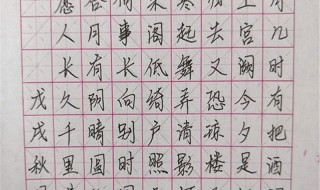 月几时有把酒
上宫阙今夕是
归去又恐琼楼
寒起舞弄清影
朱阁低绮户照
何事长向别时
合月有阴晴圆
愿人长久千里
戊戌秋